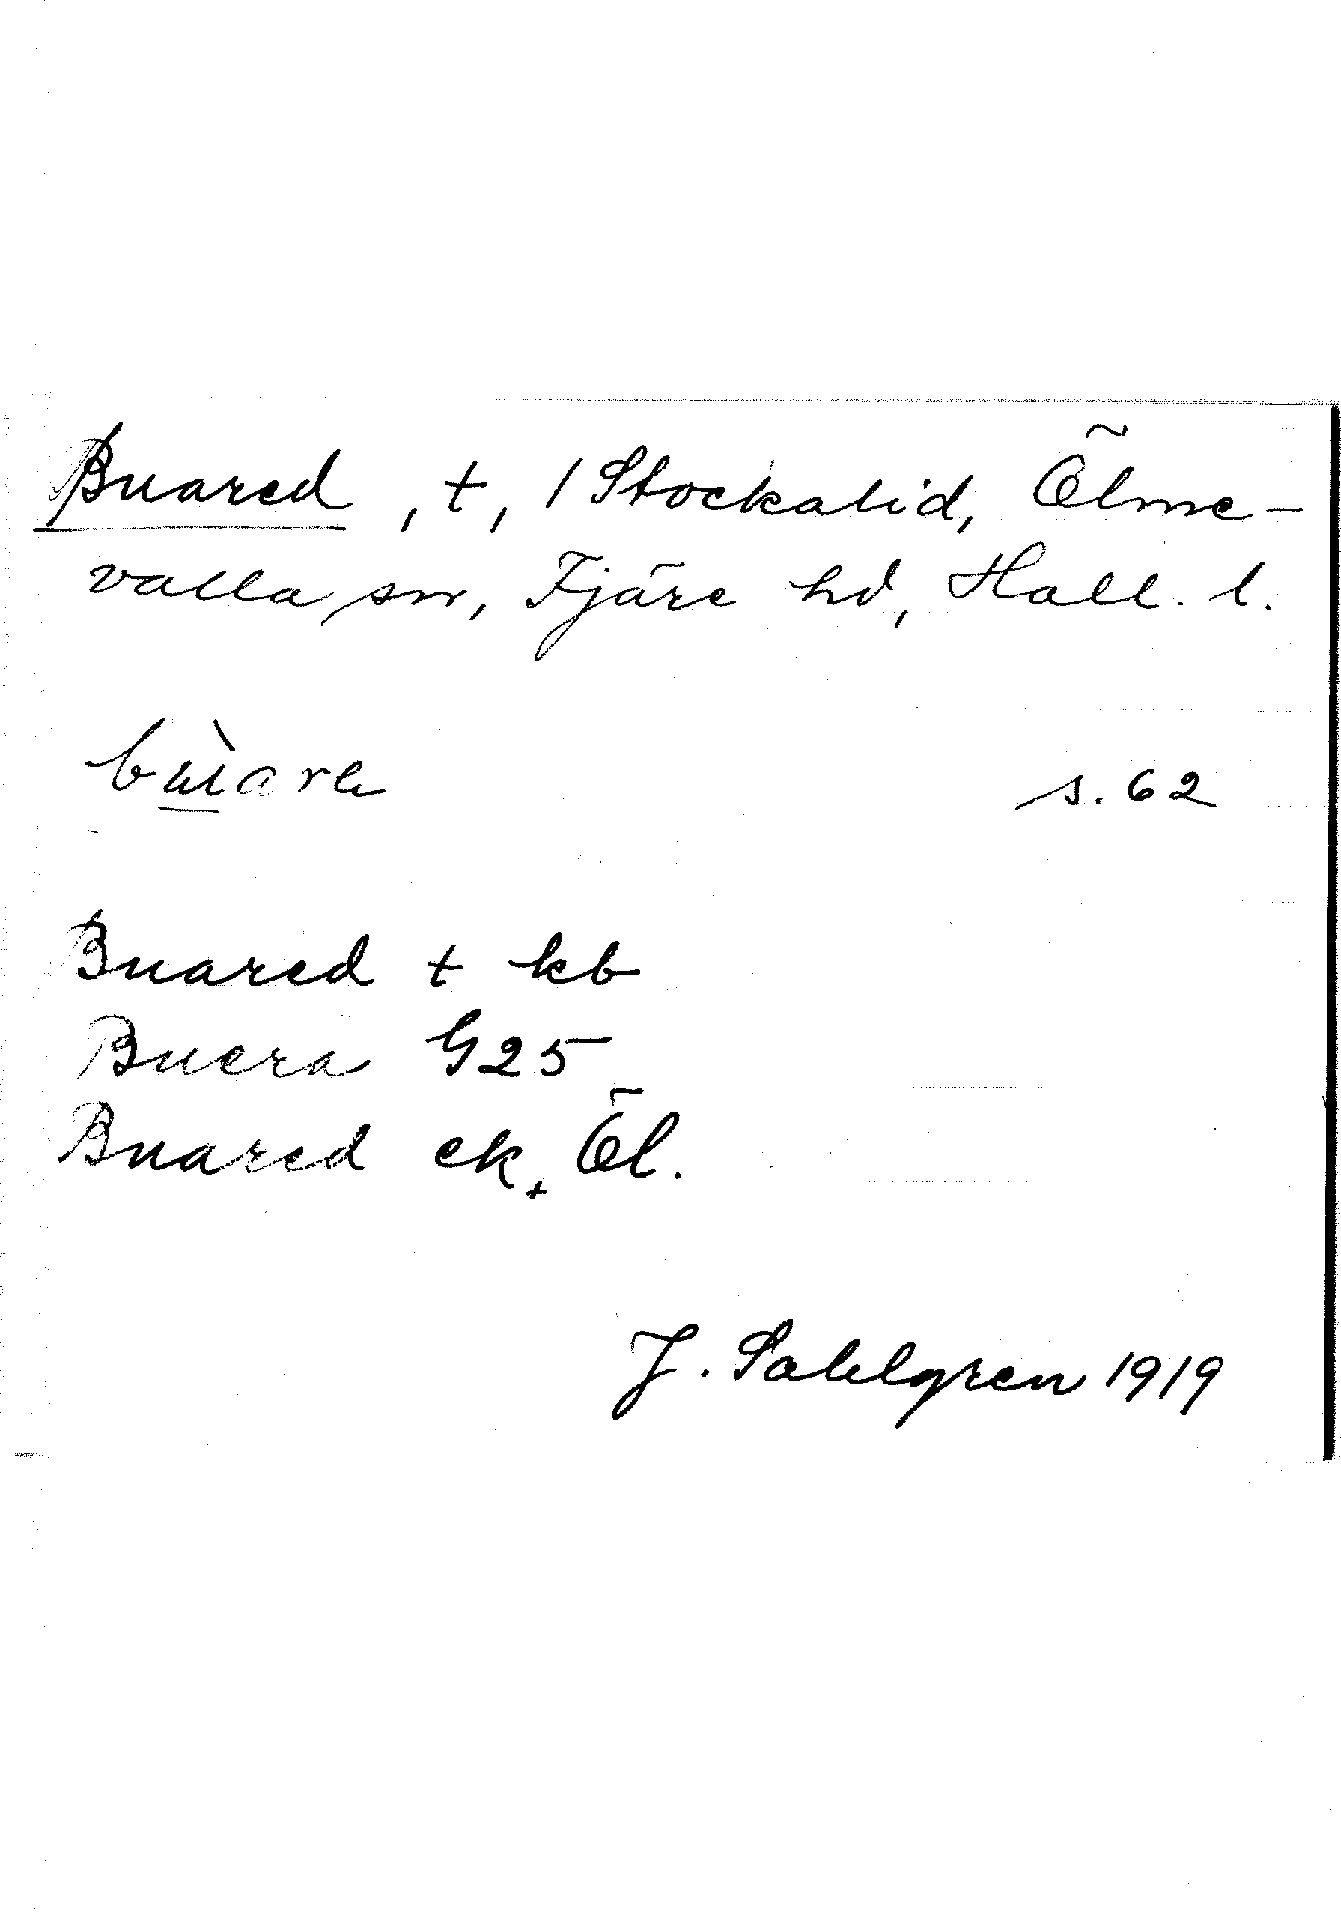 Buared, t, 1 Stockalid, Ölme-
valla sn, Fjäre hd, Hall. l.
s. 62
Buared t kb
Buera G25
Buared ek, Öl.
J. Sahlgren 1919